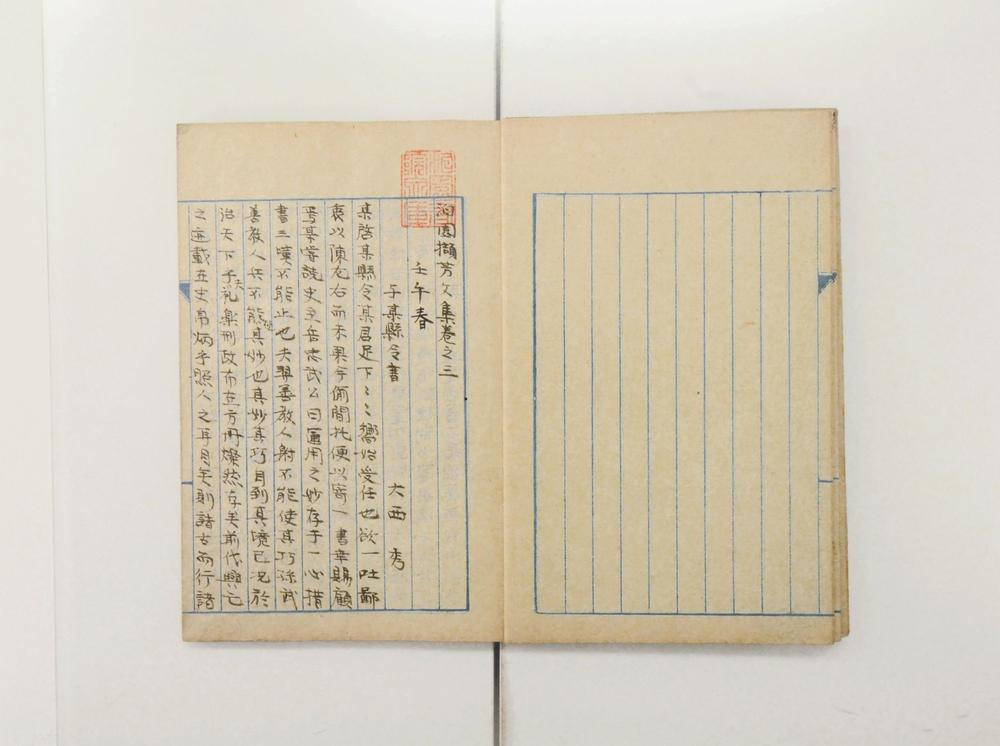 泊園擷芳文集卷之三
壬午春
与某縣令書 大西 秀
某啓某縣令某君足下〻〻嚮始受任也欲一吐鄙
衷以陳左右而未果今偷閒托便以寄一書幸賜顧
焉某嘗讀史至岳忠武公曰運用之妙存于一心措
書三嘆不能止也夫羿善教人射不能使其巧孫武
善教人兵不能其妙也其妙其巧自到其境已況於
治天下乎夫礼樂刑政布在方冊燦然存矣前代興亡
之迹載在史帛炳乎照人之耳目矣則諸古而行諸